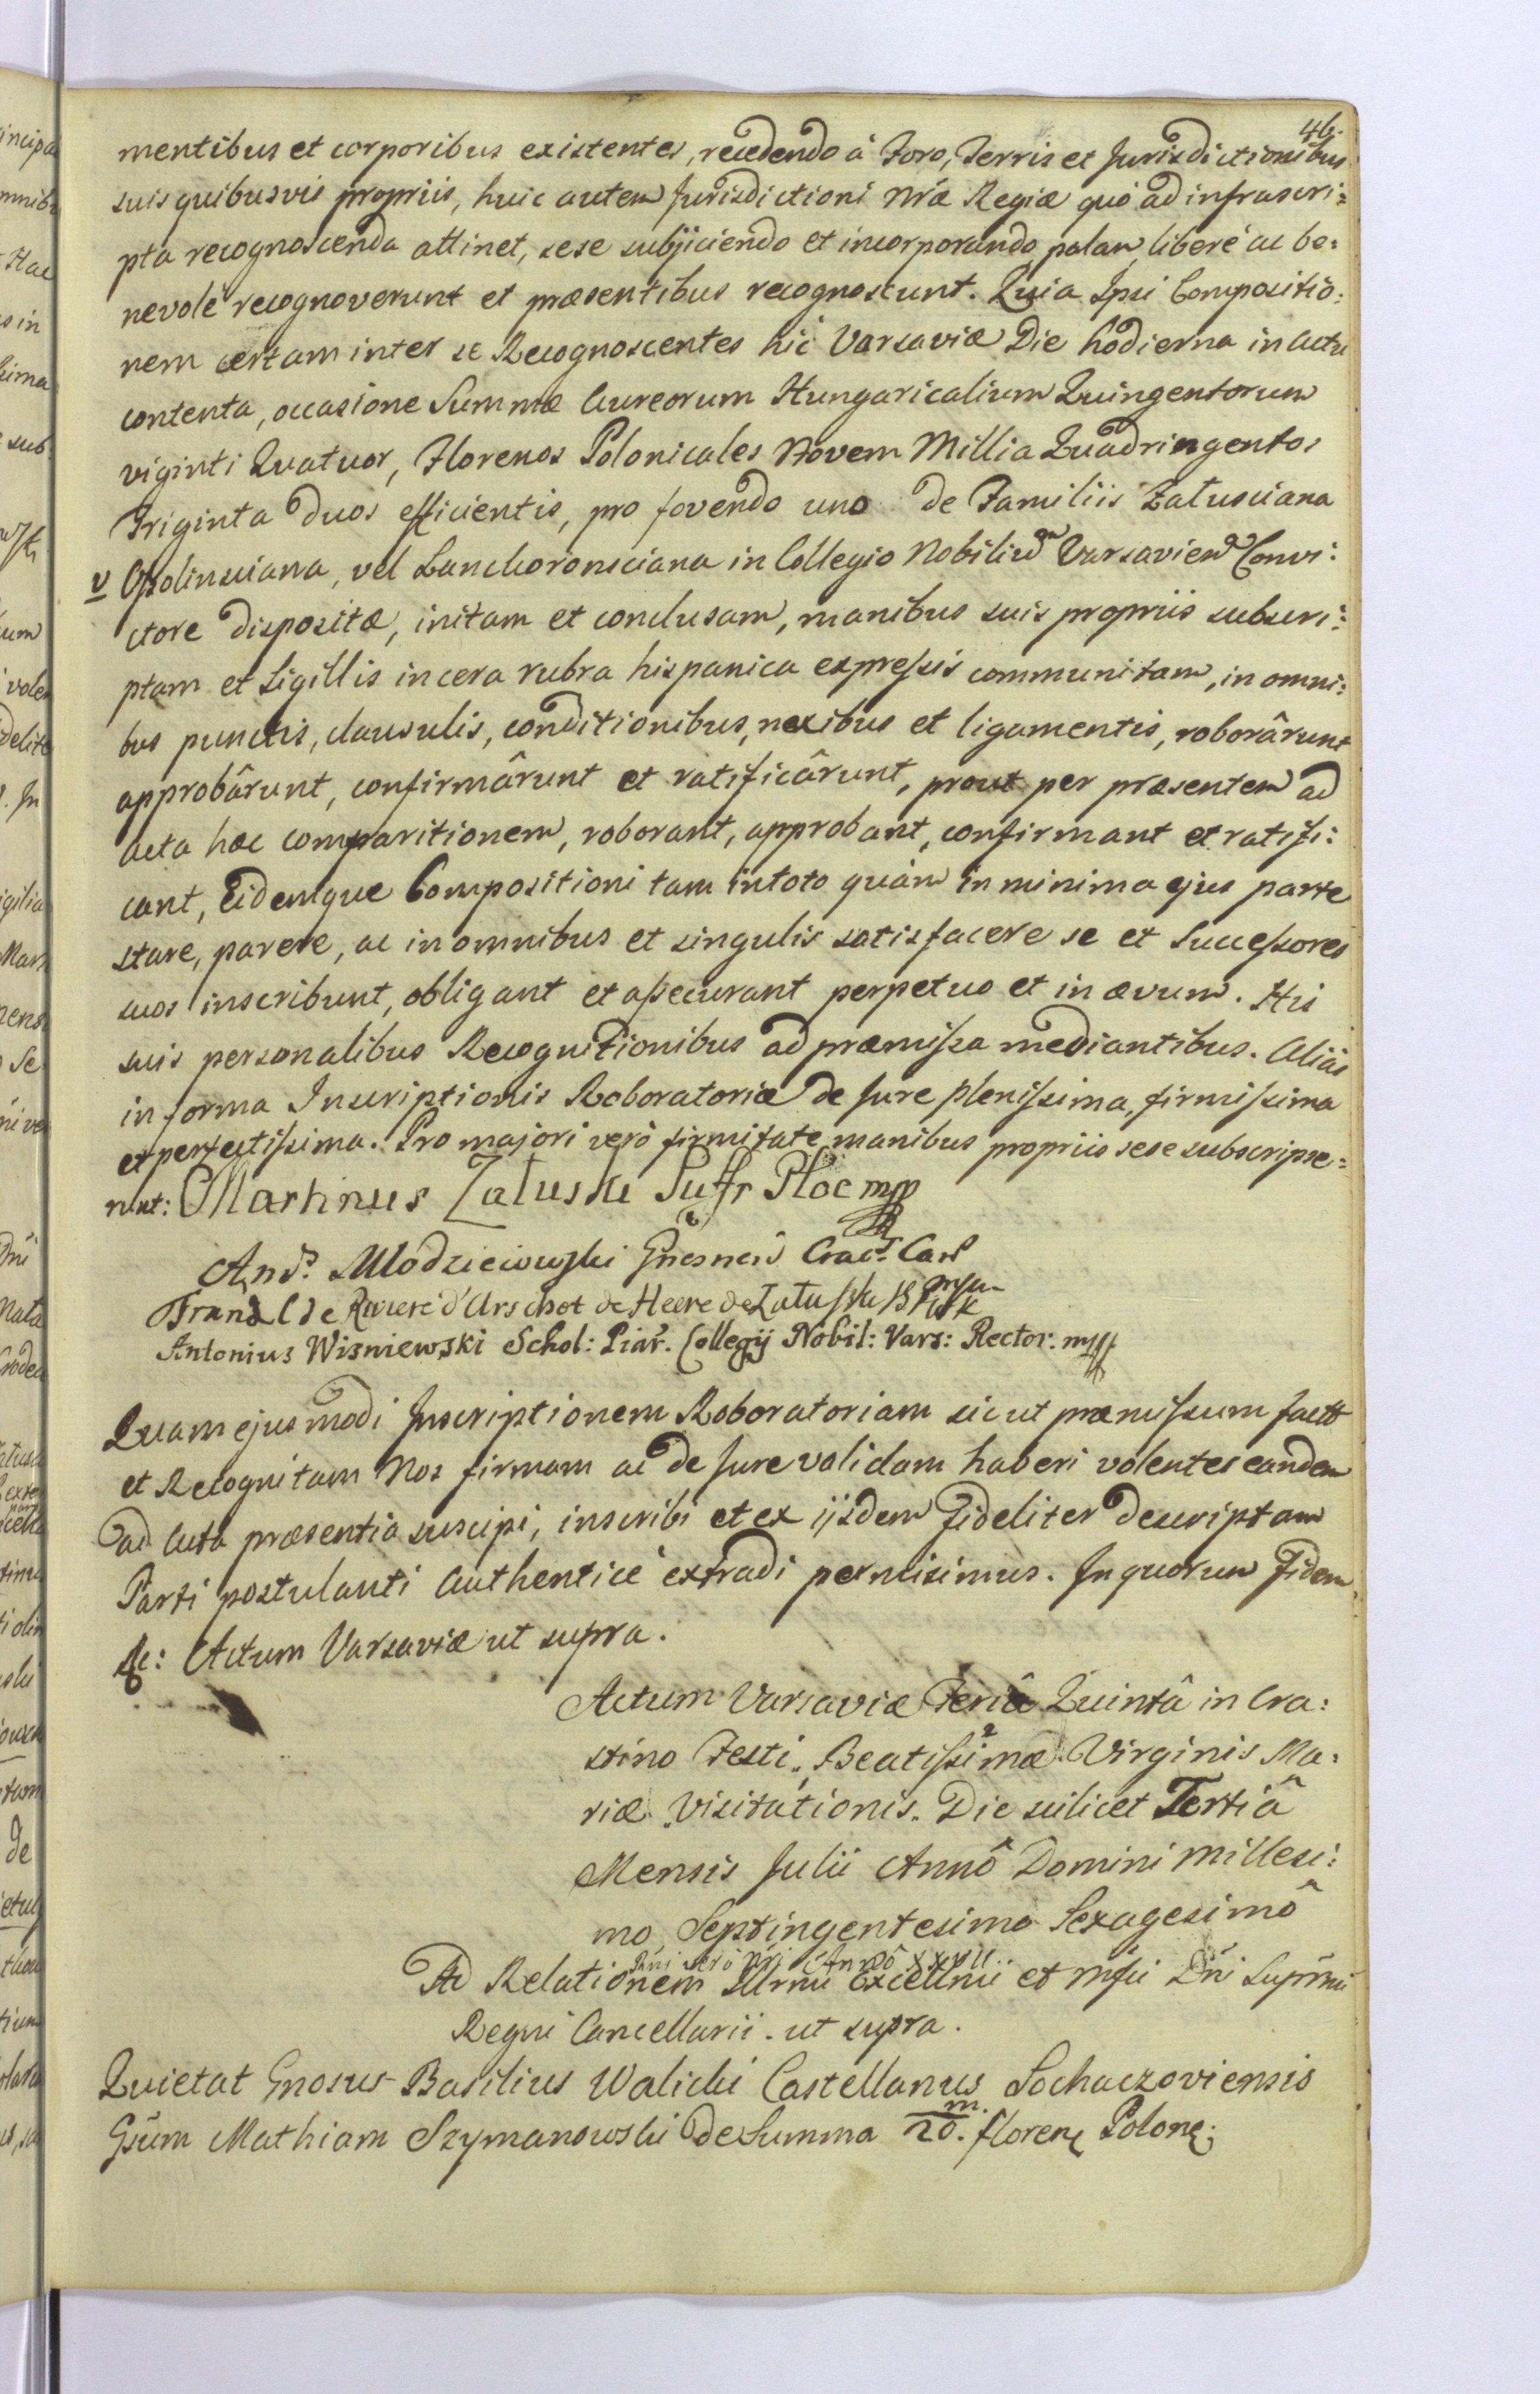 46.
mentibus et corporibus existentes, recedendo à Foro, Terris et Jurisdictionibus
suis quibusvis propriis, huic autem Jurisdictioni Nræ Regiæ quò ad infrascri:
pta recognoscenda attinet, sese subjiciendo et incorporando palam, liberè ac be:
nevolè recognoverunt et præsentibus recognoscunt. Quia Ipsi Compositio:
nem certam inter se Recognoscentes hic Varsaviæ Die hodierna in Actu
contenta, occasione Summæ Aureorum Hungaricalium Quingentorum
viginti Quatuor, Florenos Polonicales Novem Millia Quadringentos
Triginta duos efficientis, pro fovendo uno de Familiis Załusciana
v Ossolinsciana, vel Lanckoronsciana in Collegio Nobilium Varsavien Convi:
ctore dispositæ, initam et conclusam, manibus suis propriis subscri:
ptam et Sigillis in cera rubra hispanica expressis communitam, in omni:
bus punctis, clausulis, conditionibus, nexibus et ligamentis, roborârunt
approbârunt, confirmârunt et ratificârunt, prout per præsentem ad
acta hæc comparitionem, roborant, approbant, confirmant et ratifi:
cant, Eidemque Compositioni tam in toto quàm in minima ejus parte
stare, parere, ac in omnibus et singulis satisfacere se et Successores
suos inscribunt, obligant et assecurant perpetuo et in ævum. His
suis personalibus Recognitionibus ad præmissa mediantibus. Aliàs
in forma Inscriptionis Roboratoriæ de Jure plenissima, firmissima
et perfectissima. Pro majori verò firmitate manibus propriis sese subscripse:
runt: Martinus Załuski Suffr Płoc mpp
And. Młodzieiowski Gnesnen Crac. Can
Franc C de Riviere d'Arschot de Heere de Załuska
Antonius Wisniewski Schol: Piar. Collegij Nobil: Vars: Rector: mpp
Quam ejusmodi Inscriptionem Roboratoriam sicut præmissum factt
et Recognitam Nos firmam ac de Jure validam haberi volentes eandem
ad Acta præsentia suscipi, inscribi et ex iisdem fideliter descriptam
Parti postulanti Authenticè extradi permisimus. In quorum Fidem
&c: Actum Varsaviæ ut supra.
Actum Varsaviæ Feriâ Quintâ in Cra:
stino Festi Beatissimæ Virginis Ma:
riæ Visitationis. Die scilicet Tertiâ
Mensis Julii Annô Domini Millesi:
mo Septingentesimo Sexagesimô
Rni verò Nri Annô XXVII.
Ad Relationem Illrmi Excellmi et Mfici Dni Suprmi
Regni Cancellarii. ut supra.
Quietat Gnosus Basilius Walicki Castellanus Sochaczoviensis
Gsum Mathiam Szymanowski de Summa 20.m. floren Polon: